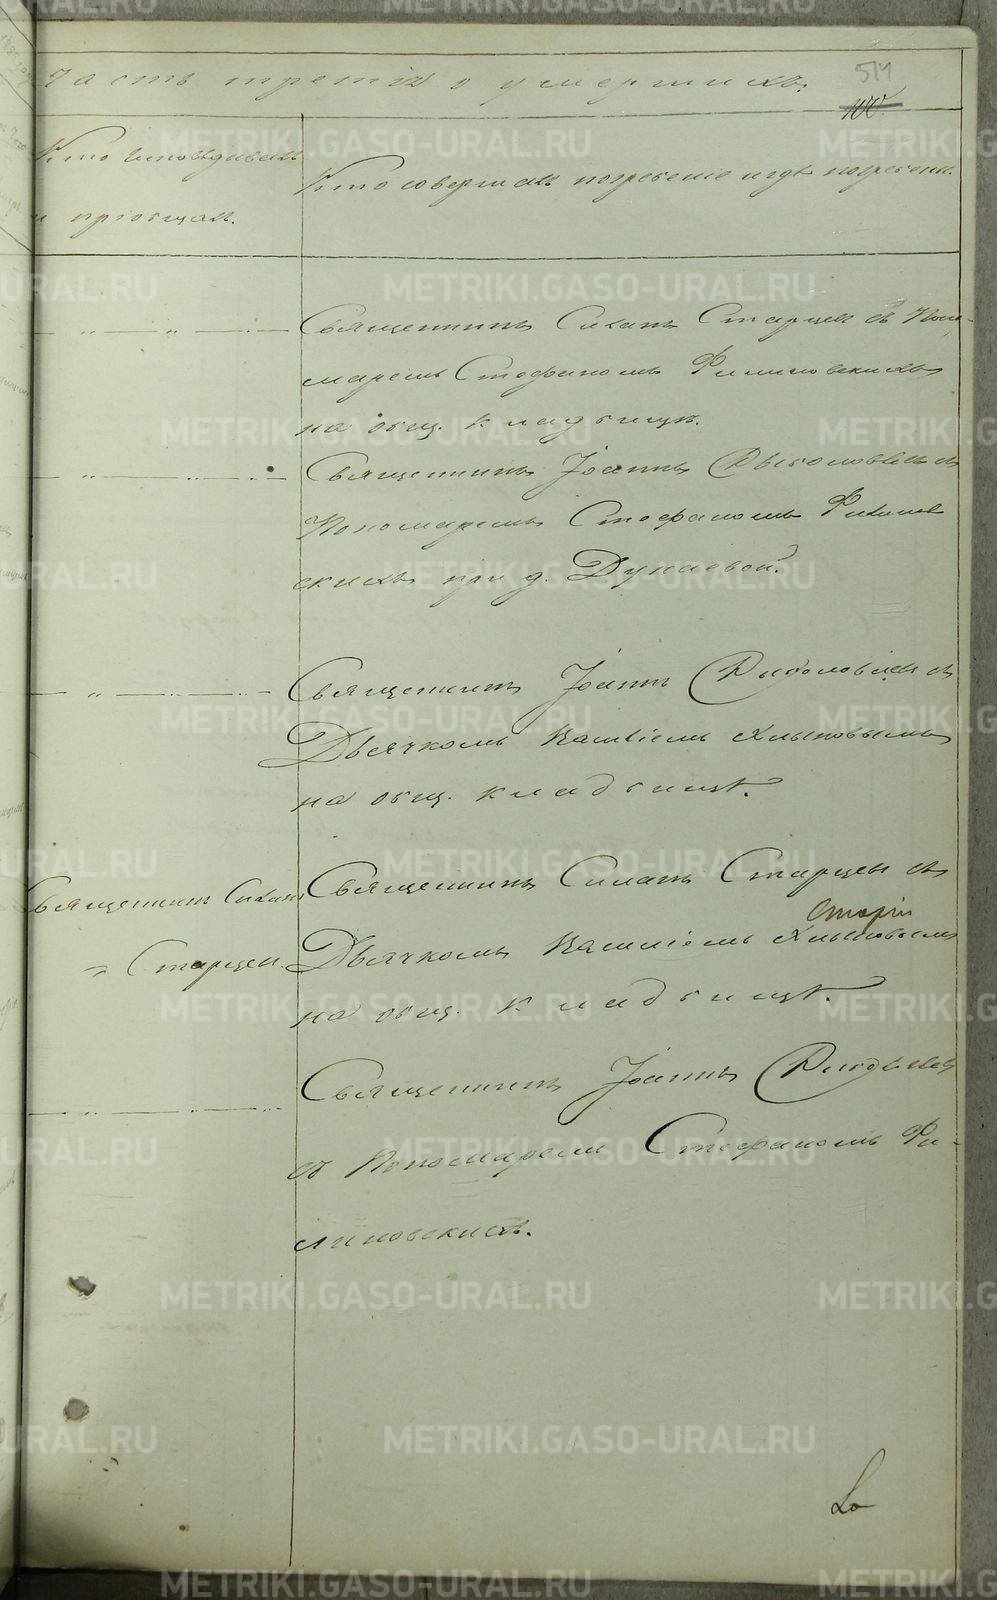 часть третія о умершихъ.
514
100
Кто исповѣдывалъ
и пріобщалъ.
Кто совершалъ погребеніе и гдѣ погребены.
Священникъ Силанъ Старцевъ съ Поно-
маремъ Стефаномъ Филиновскихъ
на общ. кладбищѣ.
Священникъ Іоаннъ съ
Пономаремъ Стефаномъ Филинов
скихъ при д. Дунаевой.
Священникъ Іоаннъ съ
Дьячкомъ Василіемъ Хлыновымъ
на общ. кладбищѣ.
Священникъ Силанъ
Старцевъ.
Священникъ Силанъ Старцевъ съ
Дьячкомъ Василіемъ Хлыновымъ
на общ. кладбищѣ.
Священникъ Іоаннъ
съ Пономаремъ Стефаномъ Фи-
линовскихъ.
METRIKI.GASO-URAL.RU